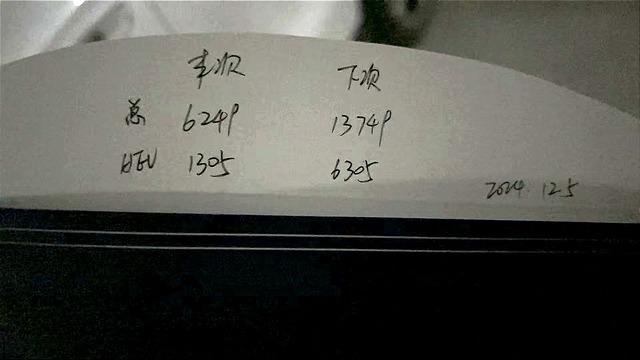 本次 下次
总 6249 13749
HEV 1305 6305
2024.12.5